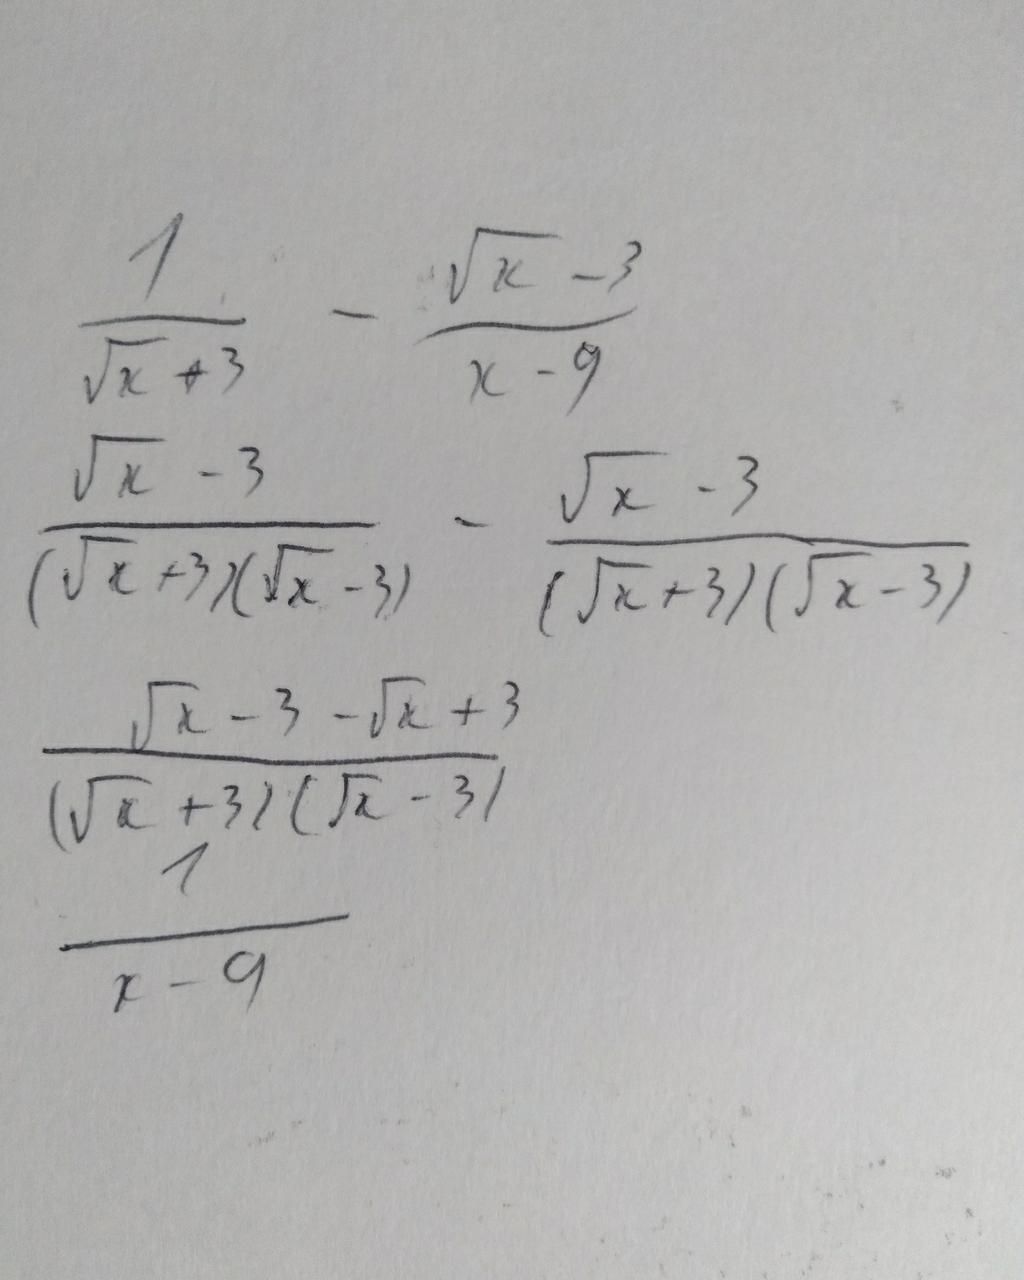 1/(√x + 3) - (√x - 3)/(x - 9)
(√x - 3)/((√x + 3)(√x - 3)) - (√x - 3)/((√x + 3)(√x - 3))
(√x - 3 - √x + 3)/((√x + 3)(√x - 3))
1/(x - 9)